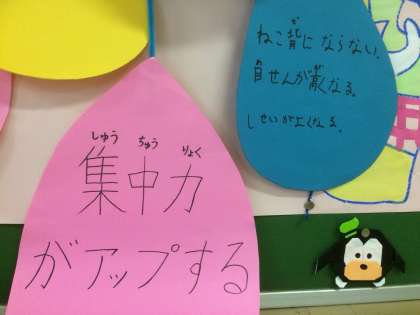 しゅう ちゅう りょく
集中力
がアップする
ぜ
ねこ背にならない.
自せんが高くなる。
しせいがよくなる。